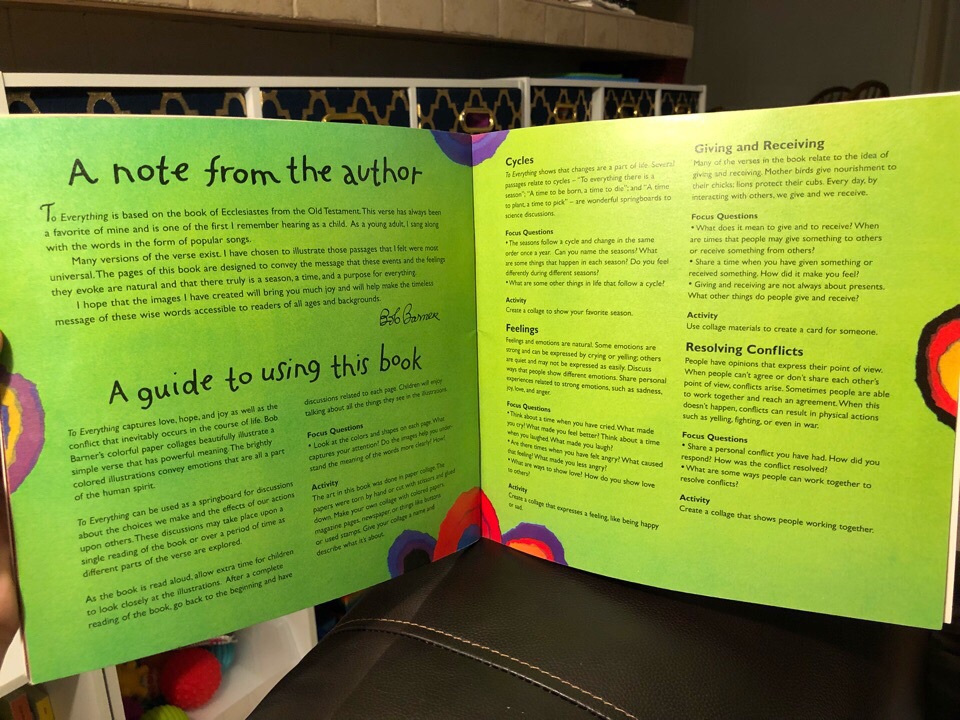 A note from the author
To Everything is based on the book of Ecclesiastes from the Old Testament. This verse has always been
a favorite of mine and is one of the first I remember hearing as a child. As a young adult, I sang along
with the words in the form of popular songs.
Many versions of the verse exist. I have chosen to illustrate those passages that I felt were most
universal. The pages of this book are designed to convey the message that these events and the feelings
they evoke are natural and that there truly is a season, a time, and a purpose for everything.
I hope that the images I have created will bring you much joy and will help make the timeless
message of these wise words accessible to readers of all ages and backgrounds.
Bob Barner
A guide to using this book
To Everything captures love, hope, and joy as well as the
conflict that inevitably occurs in the course of life. Bob
Barner's colorful paper collages beautifully illustrate a
simple verse that has powerful meaning. The brightly
colored illustrations convey emotions that are all a part
of the human spirit.
To Everything can be used as a springboard for discussions
about the choices we make and the effects of our actions
upon others. These discussions may take place upon a
single reading of the book or over a period of time as
different parts of the verse are explored.
As the book is read aloud, allow extra time for children
to look closely at the illustrations. After a complete
reading of the book, go back to the beginning and have
discussions related to each page. Children will enjoy
talking about all the things they see in the illustrations.
Focus Questions
• Look at the colors and shapes on each page. What
captures your attention? Do the images help you under-
stand the meaning of the words more clearly? How?
Activity
The art in this book was done in paper collage. The
papers were torn by hand or cut with scissors and glued
down. Make your own collage with colored papers,
magazine pages, newspaper, or things like buttons
or used stamps. Give your collage a name and
describe what it's about.
Cycles
To Everything shows that changes are a part of life. Several
passages relate to cycles – "To everything there is a
season"; "A time to be born, a time to die"; and "A time
to plant, a time to pick" – are wonderful springboards to
science discussions.
Focus Questions
• The seasons follow a cycle and change in the same
order once a year. Can you name the seasons? What
are some things that happen in each season? Do you feel
differently during different seasons?
• What are some other things in life that follow a cycle?
Activity
Create a collage to show your favorite season.
Feelings
Feelings and emotions are natural. Some emotions are
strong and can be expressed by crying or yelling; others
are quiet and may not be expressed as easily. Discuss
ways that people show different emotions. Share personal
experiences related to strong emotions, such as sadness,
joy, love, and anger.
Focus Questions
• Think about a time when you have cried. What made
you cry? What made you feel better? Think about a time
when you laughed. What made you laugh?
• Are there times when you have felt angry? What caused
that feeling? What made you less angry?
• What are ways to show love? How do you show love
to others?
Activity
Create a collage that expresses a feeling, like being happy
or sad.
Giving and Receiving
Many of the verses in the book relate to the idea of
giving and receiving. Mother birds give nourishment to
their chicks; lions protect their cubs. Every day, by
interacting with others, we give and we receive.
Focus Questions
• What does it mean to give and to receive? When
are times that people may give something to others
or receive something from others?
• Share a time when you have given something or
received something. How did it make you feel?
• Giving and receiving are not always about presents.
What other things do people give and receive?
Activity
Use collage materials to create a card for someone.
Resolving Conflicts
People have opinions that express their point of view.
When people can't agree or don't share each other's
point of view, conflicts arise. Sometimes people are able
to work together and reach an agreement. When this
doesn't happen, conflicts can result in physical actions
such as yelling, fighting, or even in war.
Focus Questions
• Share a personal conflict you have had. How did you
respond? How was the conflict resolved?
• What are some ways people can work together to
resolve conflicts?
Activity
Create a collage that shows people working together.